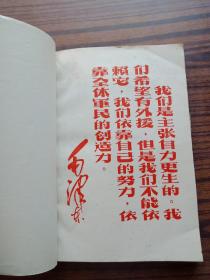 我们是主张自力更生的。我
们希望有外援，但是我们不能依
赖它，我们依靠自己的努力，依
靠全体军民的创造力。
毛泽东